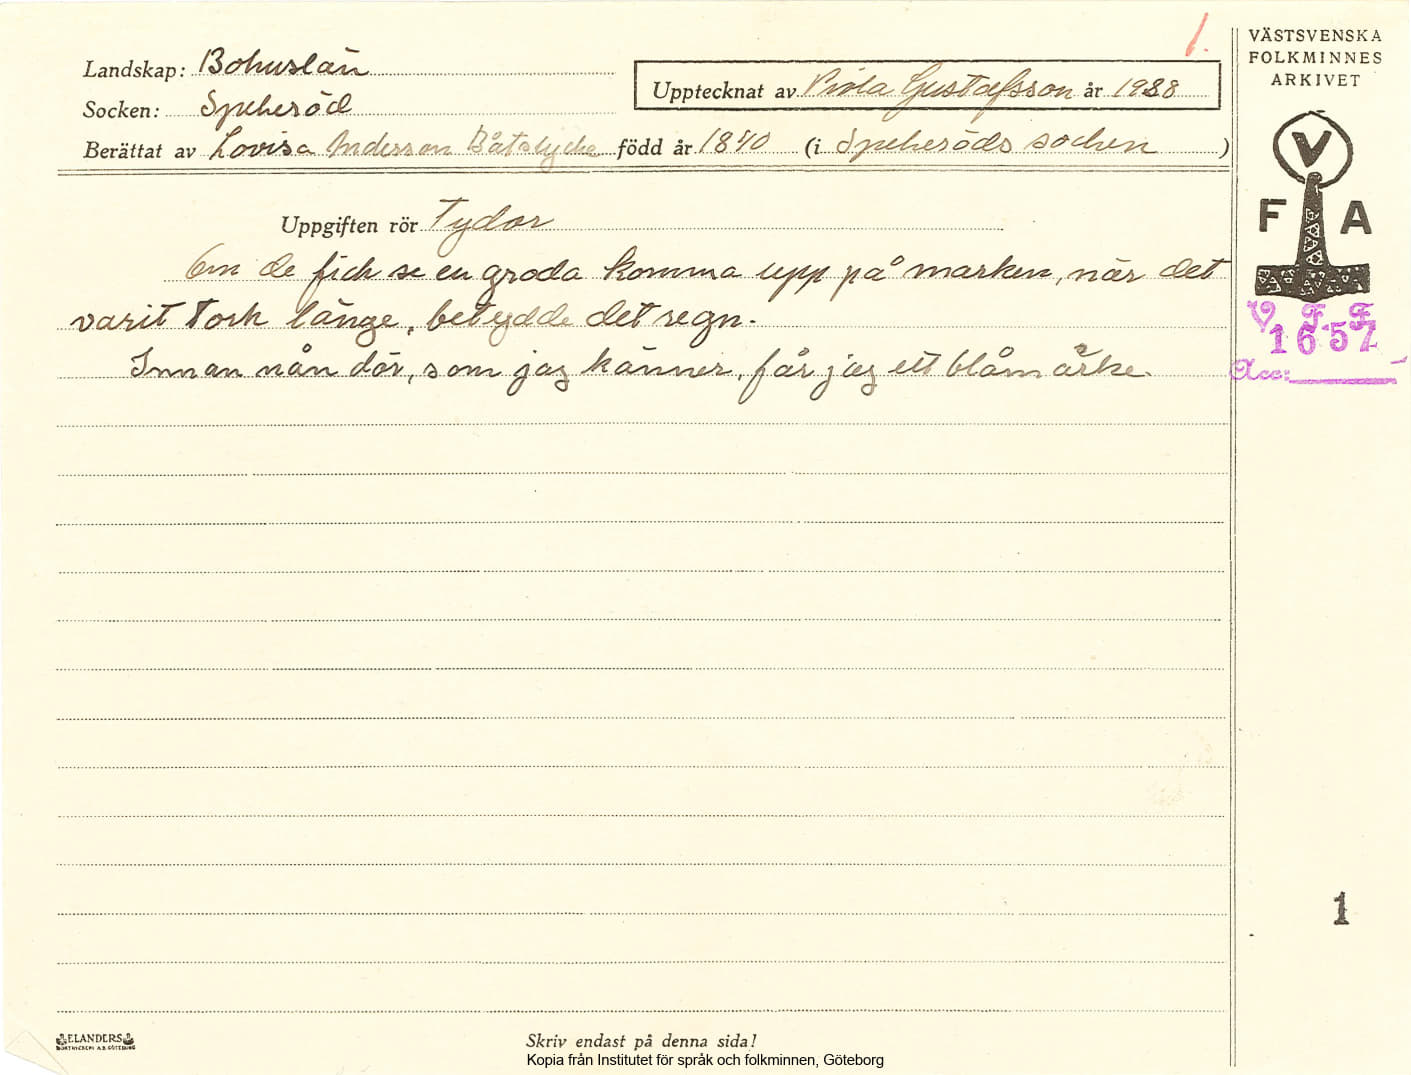 1.
Landskap: Bohuslän
Upptecknat av Viola Gustafsson år 1938
Socken: Spekeröd
Berättat av Lovisa Andersson Båtslycke född år 1840 (i Spekeröds socken )
Uppgiften rör Tydor
Om de fick se en groda komma upp på marken, när det
varit tork länge, betydde det regn.
Innan nån dör, som jag känner, får jag ett blåmärke.
VÄSTSVENSKA
FOLKMINNES
ARKIVET
V
F A
V F F
1657
Acc:
1
ELANDERS
BOKTRYCKERI A.B. GÖTEBORG
Skriv endast på denna sida!
Kopia från Institutet för språk och folkminnen, Göteborg